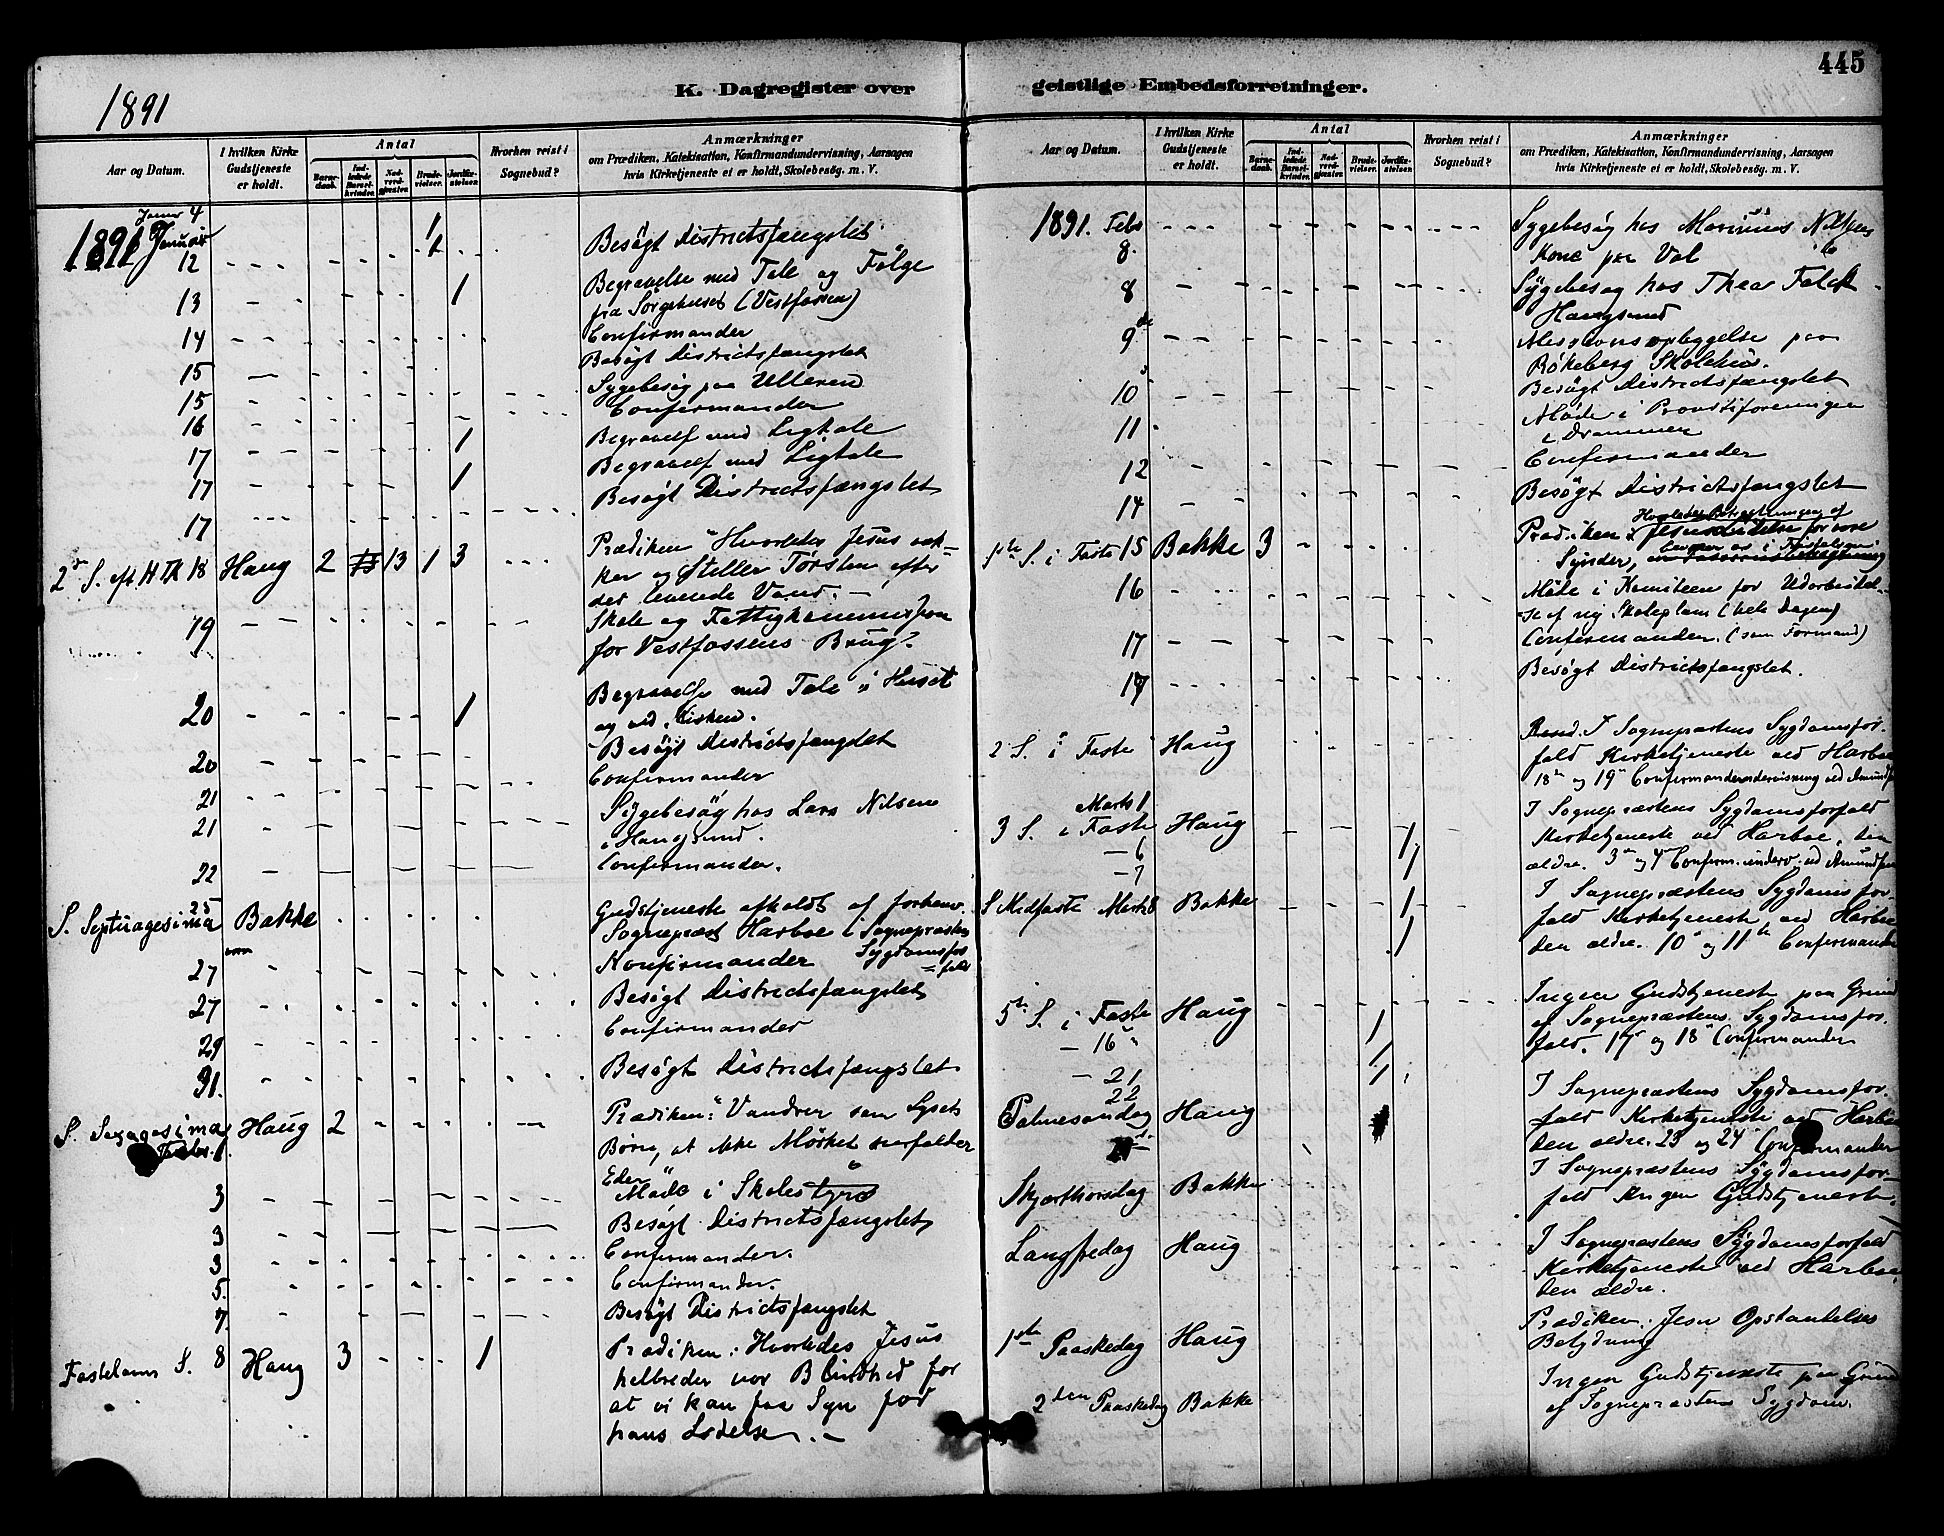 445
K. Dagregister over geistlige Embedsforretninger.
1891
Aar og Datum.
I hvilken Kirke Gudstjeneste er holdt.
Antal
Barnedaab.
Indledede Barselkvinder.
Nadverdgjester.
Brudevielser.
Jordfæstelser.
Hvorhen reist i Sognebud?
Anmærkninger
om Prædiken, Katekisation, Konfirmandundervisning, Aarsagen
hvis Kirketjeneste ei er holdt, Skolebesøg. m. V.
Januar 4 1
1891 Januar
12 Besøgt Districtsfængslet
13 1 Begravelse med Tale og Følge
fra Sørgehuset (Vestfossen)
14 Confirmander
15 Besøgt Districtsfængslet
15 Sygebesøg paa Ulleren
16 Confirmander
17 1 Begravels med Ligtale
17 1 Begravels med Ligtale
17 Besøgt Districtsfængslet
2 S. eft. H3K 18 Haug 2 13 1 3 Prædiken "Hvorledes Jesus væk-
ker og stiller Tørsten efter
det levende Vand. —
19 Skole og Fattigkommission
for Vestfossens Brug.
20 1 Begravelse med Tale i Huset
og ved Kirken.
20 Besøgt Districtsfængslet
21 Confirmander
21 Sygebesøg hos Lars Nilsen
i Haugsund.
22 Confirmander.
S. Septuagesima 25 Bakke Gudstjeneste afholdt af forhenv.
Sognepræst Harboe i Sognepræsten
Sygdomsforfald
27 Konfirmander
27 Besøgt Districtsfængslet
29 Confirmander
31. Besøgt Districtsfængslet
S. Sexagesima Febr. 1 Haug 2 Prædiken: Vandrer som Lysets
Børn, at ikke Mørket overfalder
Eder"
3 Møde i Skolestyre
3 Besøgt Districtsfængslet
3 Confirmander.
5. Confirmander.
7. Besøgt Districtsfængslet
Fastelavns S. 8 Haug 3 1 Prædiken: Hvorledes Jesus
helbreder vor Blindhed for
at vi kan faa Syn for
hans Lidelse. —
Aar og Datum.
I hvilken Kirke Gudstjeneste er holdt.
Antal
Barnedaab.
Indledede Barselkvinder.
Nadverdgjester.
Brudevielser.
Jordfæstelser.
Hvorhen reist i Sognebud?
Anmærkninger
om Prædiken, Katekisation, Konfirmandundervisning, Aarsagen
hvis Kirketjeneste ei er holdt, Skolebesøg. m. V.
1891. Feb 8. Sygebesøg hos Marinius Nilsens
Kone paa Vol
8 Sygebesøg hos Thea Falck
Haugsund
9de Missionsopbyggelse paa
Røkeberg Skolehus.
10 Besøgt Districtsfængslet
11 Møde i Provstiforeningen
i Drammen
12 Confirmander
14 Besøgt Districtsfængslet
1ste S. i Faste 15 Bakke 3 Prædiken: Hvorledes Betragtningen af
Jesu Lidelse for vore
Synder,
16 Møde i Komiteen for Udarbeidel-
se af ny Skoleplan (hele Dagen)
(som Formand)
17 Confirmander.
17 Besøgt Districtsfængslet.
2 S. i Faste Haug I Sognepræstens Sygdomsfor-
fald Kirketjeneste ved Harboe
18de og 19de Confirmandundervisning ved
Marts 1
3 S. i Faste Haug I Sognepræstens Sygdomsforfald
— 6 1 Kirketjeneste ved Harboe, den
— 7 1 ældre. 3de og 4de Confirm. underv. ved
S Midfaste Marts 8 Bakke 1 I Sognepræstens Sygdomsfor-
fald Kirketjeneste ved Harboe
1 den ældre. 10de og 11te Confirmander
5te S. i Faste Haug Ingen Gudstjeneste paa Grund
— 16 1 af Sognepræstens Sygdomsfor-
fald. 17 og 18 Confirmander
— 21 1
22
Palmesøndag Haug I Sognepræstens Sygdomsfor-
fald Kirketjeneste ved Harboe
den ældre. 23 og 24 Confirmander
Skjærthorsdag Bakke I Sognepræstens Sygdomsfor-
fald Ingen Gudstjeneste.
Langfredag Haug I Sognepræstens Sygdomsforfald
Kirketjeneste ved Harboe
den ældre.
1ste Paaskedag Haug Prædiken: Jesu Opstandelses
Betydning
2den Paaskedag Bakke Ingen Gudstjeneste paa Grund
af Sognepræstens Sygdom.